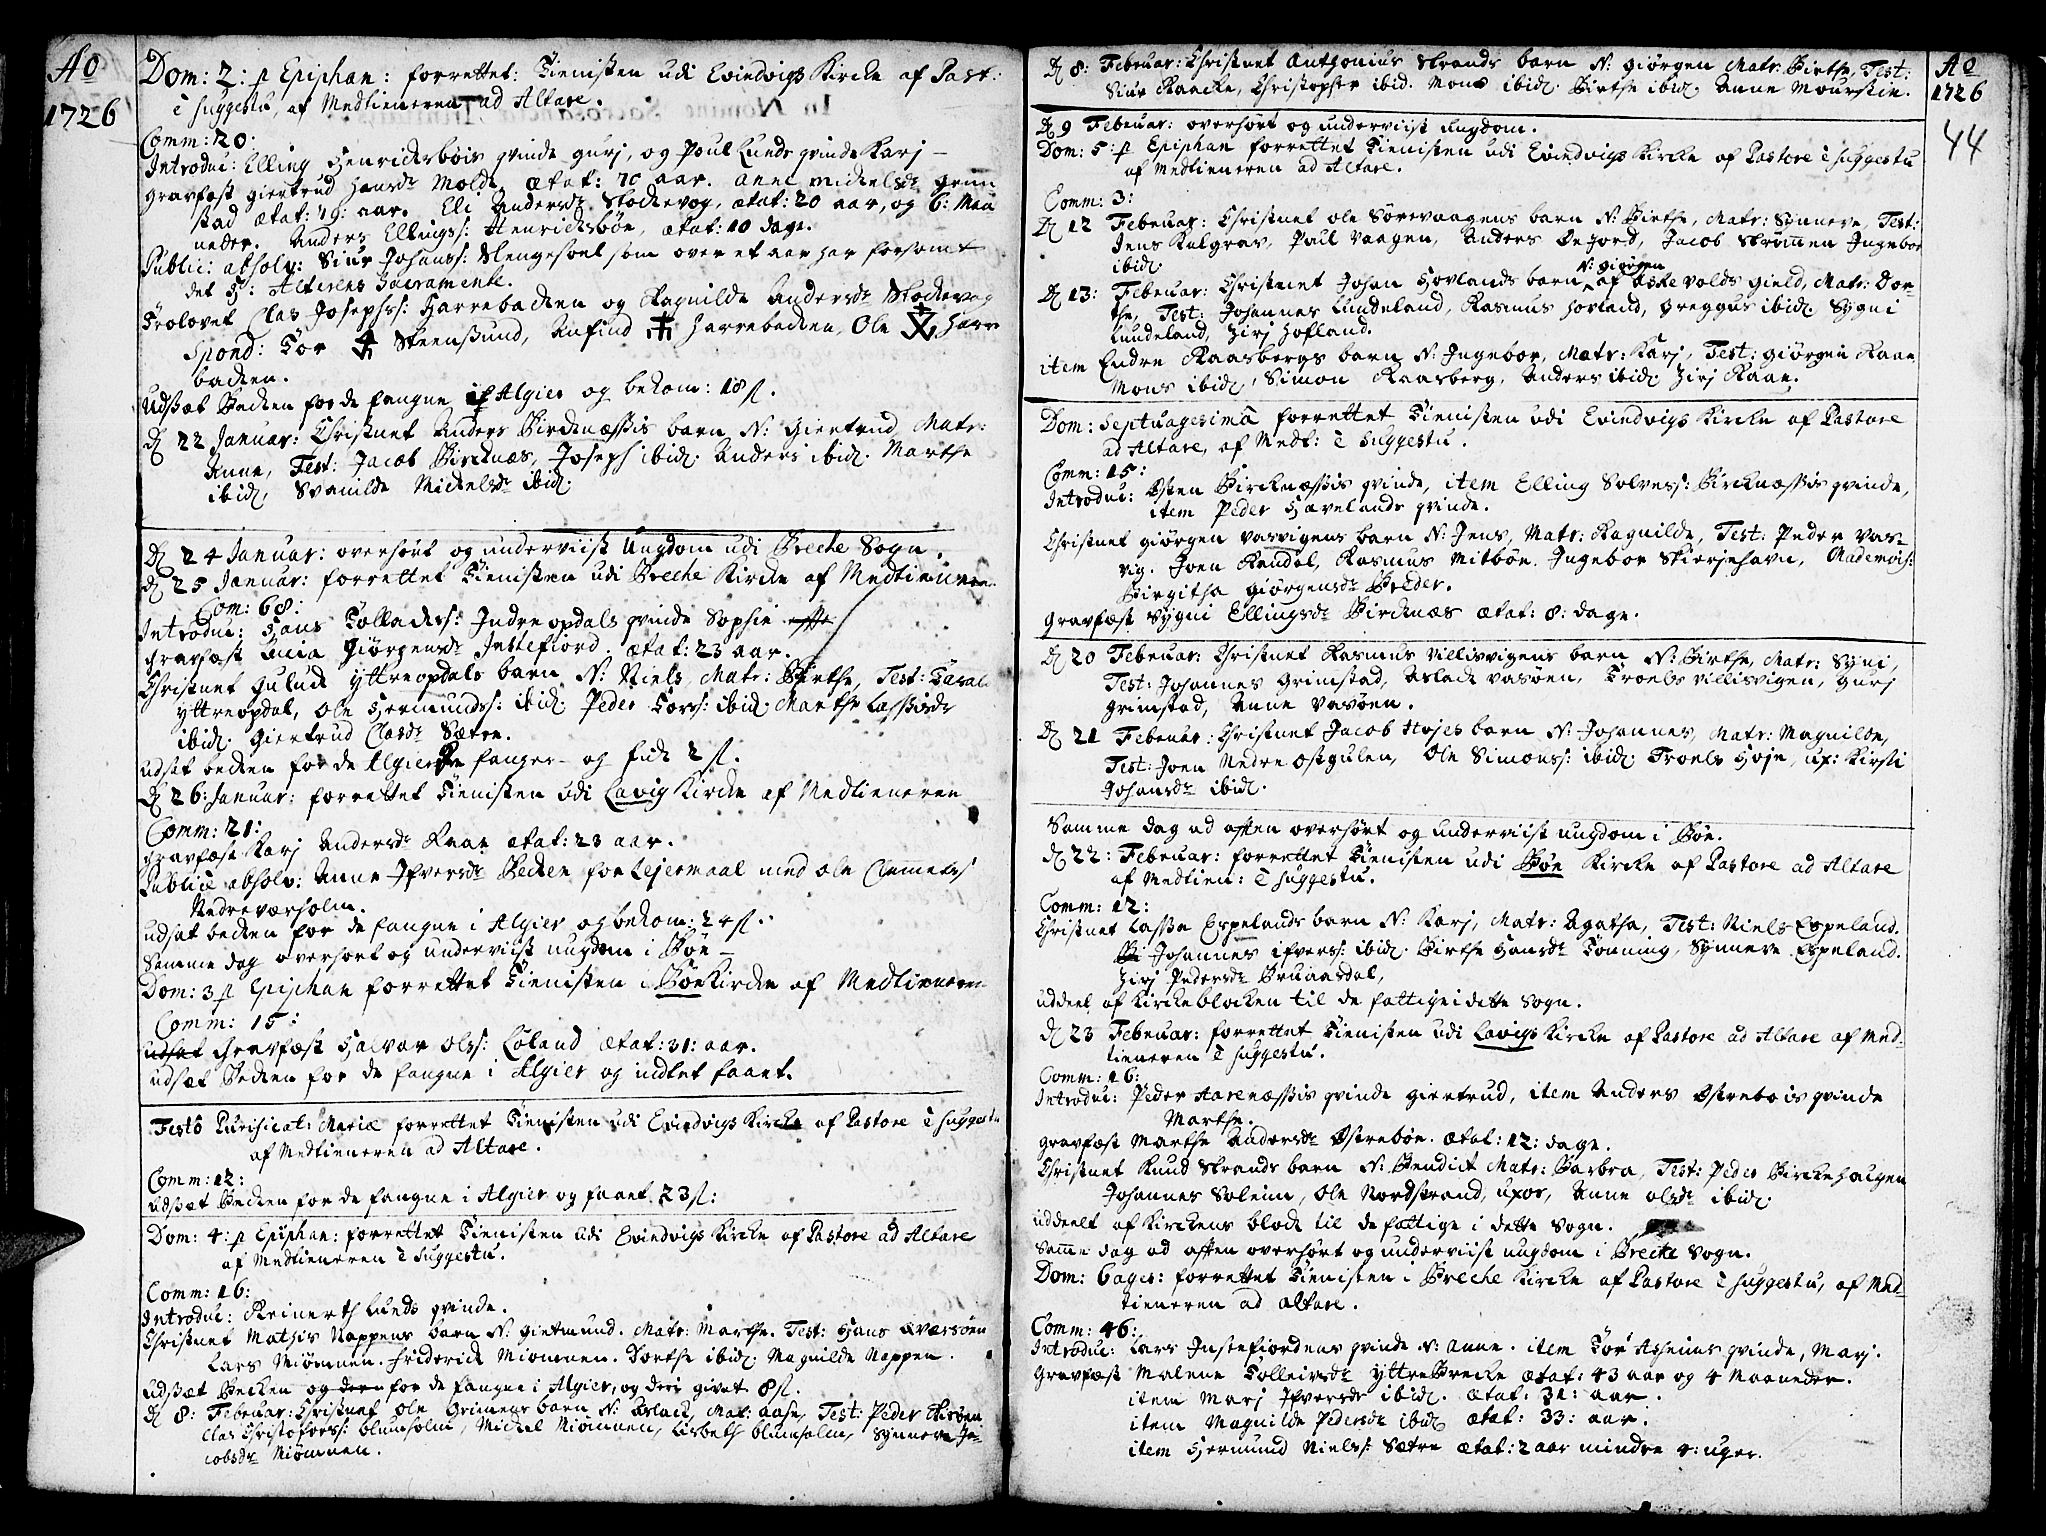 Ao
1726
Dom: 2: p Epiphan: forrettet Tienisten udi Evindvigs Kircke af Past:
è suggestu, af Medtieneren ad Altare.
Comm: 20:
Introduc: Elling Henricksbøis qvinde gurj, og Poul Lunds qvinde Karj
gravfæst giertrud Hansdr Molde, ætat: 70 aar. Anne Mickelsdr grim
stad ætat: 19: aar. Eli Andersdr Stockevog, ætat: 20 aar, og 6: Maa
neder. Anders Ellingss: Henricksbøn, ætat: 10 dage.
Public: absolv: Siur Johanss: Slengesoel som over et aar har forsømt
det H: Alterens Sacramente.
Trolovet Clas Josephss: Harrebacken og Ragnilde Andersdr Stockevog
Spond: Tor Steensund, Anfind Harrebacken, Ole Harre
backen.
Udsat Becken for de fangne i Algier og bekom: 18 s.
D 22 Januar: Christnet Anders Bircknæssis barn N: Giertrud, Matr:
Anne, Test: Jacob Bircknæs, Joseph ibid. Anders ibid. Marthe
ibid, Svanilde Mickelsdr ibid.
D 24 Januar: overhørt og underviist Ungdom udi Breche Sogn.
D 25 Januar: forrettet Tienisten udi Breche Kircke af Medtieneren
Com: 68:
Introduc: Hans Tollackss: Indreopdals qvinde Sophie
Gravfæst Lucia Giørgensdr Instefiord. ætat: 23 aar.
Christnet Guluck Yttreopdals barn N: Niels, Matr: Birthe, Test: Taral
Yttreopdal, Ole Hermunds: ibid. Peder Torss: ibid. Marthe Lassisdr
ibid. Giertrud Clasdr Sætre.
udsat becken for de Algierske fanger og fick 2 s.
D 26: Januar: forrettet Tienisten udi Lavig Kircke af Medtieneren
Comm: 21:
Gravfæst Karj Andersdr Raae ætat: 23 aar.
Publicè absolv: Anne Ifversdr Becken for Lejermaal med Ole Clemets
Nedreværholm.
udsat becken for de fangne i Algier og bekom: 24 s.
Samme dag overhørt og underviist ungdom i Bøe
Dom: 3 p Epiphan forrettet Tienisten i Bøe Kircke af Medtieneren
Comm: 15:
udsat Gravfæst Halvor Ols: Løland ætat: 31: aar.
udsat Becken for de fangne i Algier og indtet faaet.
Festô Purificat: Mariæ forrettet Tienisten udi Evindvigs Kircke af Pastore è suggestu
af Medtieneren ad Altare.
Comm: 12:
Udsat Becken for de fangne i Algier og faaet 23 s:
Dom: 4: p Epiphan: forrettet Tienisten udi Evindvigs Kircke af Pastore ad Altare
af Medtieneren è suggestu.
Comm: 16:
Introduc: Reinerth Lunds qvinde.
Christnet Mathis Nappens barn N: Gietmund. Matr: Marthe. Test: Hans Qværsøen
Lars Miømnen. Friderick Miømnen. Dorthe ibid. Magnilde Nappen.
udsat Becken og den for de fangne i Algier, og deri givet 8 s.
D 8: Februar: Christnet Ole Grimens barn N: Aslack, Mat: Aase, Test: Peder
Clas Christofers: Blumholm, Mickel Miømnen, Lisbeth Blumholm, Synneve Ja-
cobsdr Miømnen.
D 8: Februar: Christnet Anthonius Strands barn N: Giørgen Matr: Birthe, Test:
Siur Raacke, Christopher ibid. Mons ibid. Birthe ibid. Anne Mourstin.
Ao
1726
44
D 9 Februar: overhørt og underviist ungdom.
Dom: 5: p Epiphan forrettet Tienisten udi Evindvigs Kircke af Pastore è suggestu
af Medtieneren ad Altare.
Comm: 3:
D 12 Februar: Christnet Ole Sørevaagens barn N: Birthe, Matr: Synneve, Test:
Jens Kalgrav, Paul Vaagen, Anders Dejord, Jacob Strømen Ingebor
ibid.
N: Giørgen
D 13: Februar: Christnet Johan Hovlands barn af Askevolds gield, Matr: Dor-
the, Test: Johannes Lundeland, Rasmus Hovland, Greggus ibid. Sygni
Lundeland, Zirj Hofland.
item Endre Raasbergs barn N: Ingebor, Matr: Karj, Test: Giørgen Raae
Mons ibid, Simon Raasberg, Anders ibid. Zirj Raae.
Dom: Septuagesima forrettet Tienisten udi Evindvigs Kircke af Pastore
ad Altare, af Medt: è suggestu.
Comm: 15:
Introduc: Østen Bircknæssis qvinde, item Elling Solvess: Bircknæssis qvinde,
item Peder Havelands qvinde.
Christnet Giørgen Vasvigens barn N: Jens, Matr: Ragnilde, Test: Peder Vas-
vig. Joen Rendal, Rasmus Mitbøe. Ingebor Skierjehavn, Mademois:
Birgitha Giørgensdr Breder.
Gravfæst Sygni Ellingsdr Bircknæs ætat: 8: dage.
D 20 Februar: Christnet Rasmus Villisvigens barn N: Birthe, Matr: Syni,
Test: Johannes Grimstad, Aslack Vasøen, Troels Villisvigen, Gurj
Grimstad, Anne Vasøen.
D 21 Februar: Christnet Jacob Højes barn N: Johannes, Matr: Magnilde,
Test: Joen Nedre Ostgulen, Ole Simonss: ibid. Troels Høje, ux: Kirsti
Johansdr ibid.
Samme dag ad aften overhørt og underviist ungdom i Bøe.
D 22: Februar: forrettet Tienisten udi Bøe Kircke af Pastore ad Altare
af Medtien: è suggestu.
Comm: 12:
Christnet Lasse Espelands barn N: Karj, Matr: Agatha, Test: Niels Espeland.
Johannes Ifvers: ibid. Birthe Hansdr Tønning, Synneve Espeland.
Zirj Pedersdr Bruaasdal,
uddeel af Kirckeblocken til de fattige i dette Sogn.
D 23 Februar: forrettet Tienisten udi Lavigs Kircke af Pastore ad Altare af Med-
tieneren è suggestu.
Comm: 16:
Introduc: Peder Aarenæssis qvinde Giertrud, item Anders Østrebøis qvinde
Marthe.
gravfæst Marthe Andersdr Østrebøe. ætat: 12: dage.
Christnet Knud Strands barn N: Bendict Matr: Barbra, Test: Peder Birckehaugen
Johannes Soleim, Ole Nordstrand, uxor, Anne Olsdr ibid.
uddeelt af Kirckens block til de fattige i dette Sogn.
Samme dag ad aften overhørt og underviist ungdom i Brecke Sogn.
Dom: 6ages: forrettet Tienisten i Breche Kircke af Pastore è suggestu, af Med-
tieneren ad altare.
Comm: 46:
Introduc: Lars Instefiordens qvinde N: Anne. item Tor Asheims qvinde, Marj.
Gravfæst Malene Tolleivsdr Yttrebrecke ætat: 43 aar og 4 Maaneder.
item Marj Ifversdr ibid. ætat: 31: aar.
item Magnilde Pedersdr ibid ætat: 33: aar.
item Hermund Nielss: Sætre ætat: 2 aar mindre 4: uger.